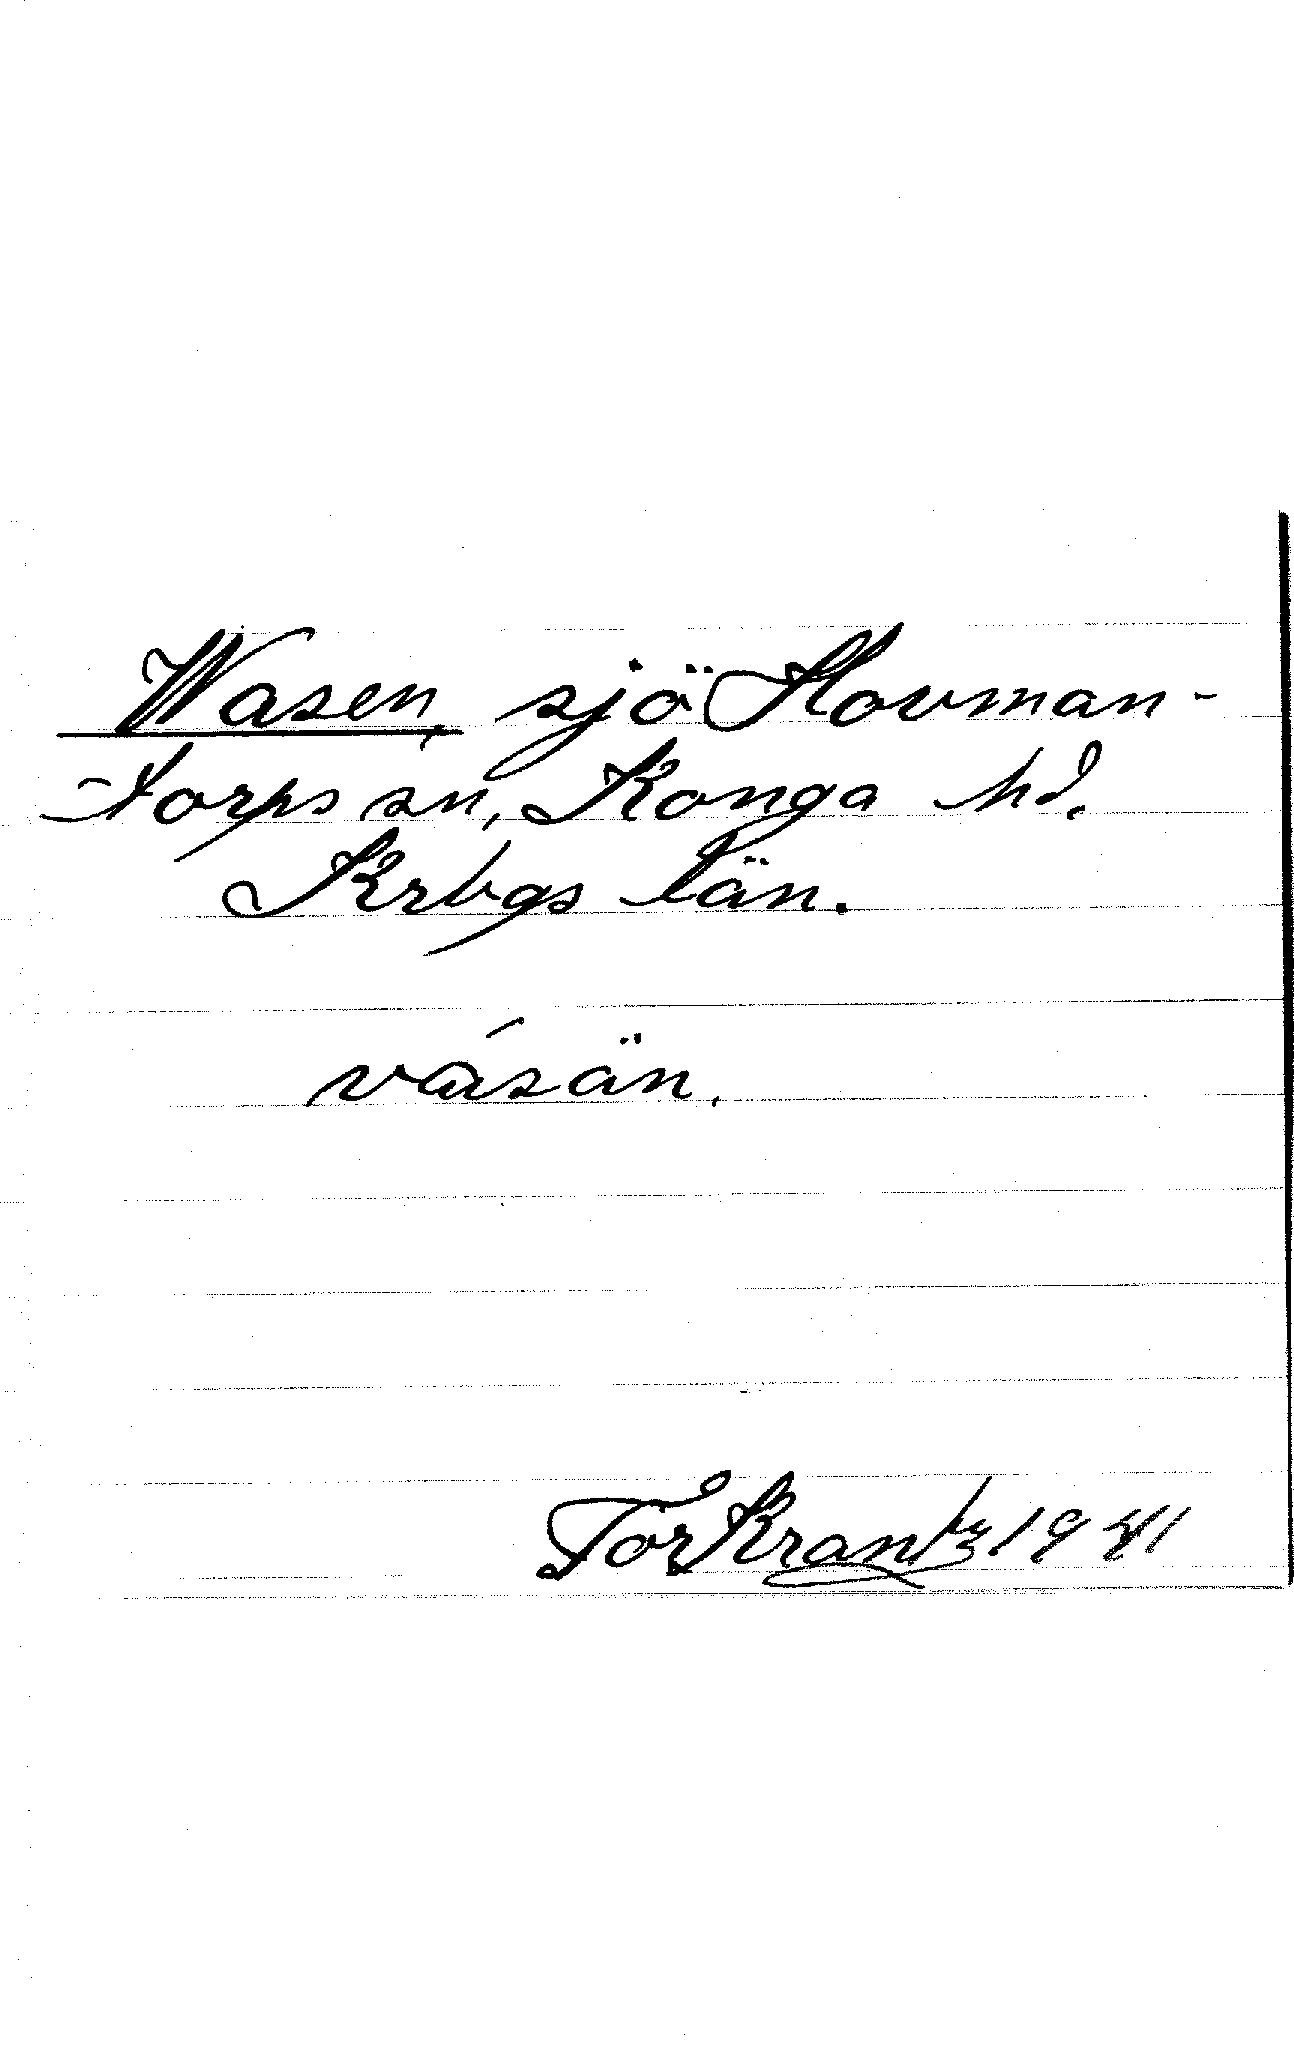 Wasen, sjö Hovman-
torps sn, Konga hd.
Krbgs län.
vásän.
Tor Krantz 1941